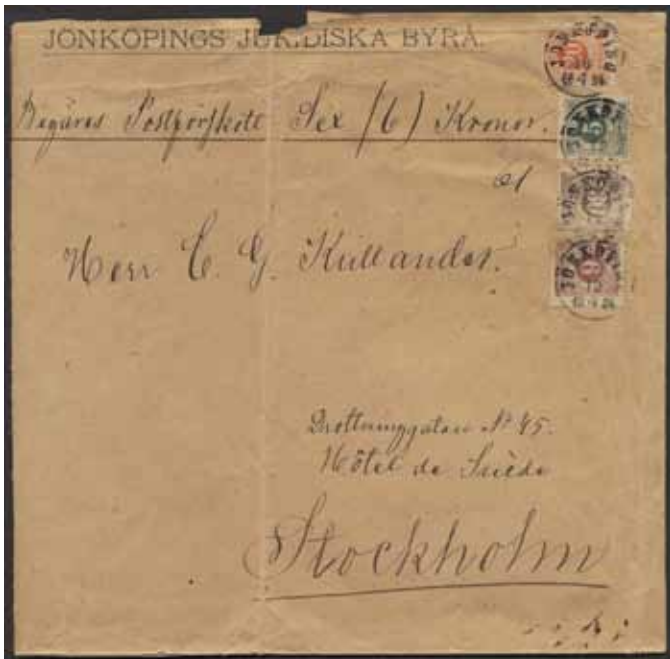 JÖNKÖPINGS JURIDISKA BYRÅ.
Begäres Postförskott Sex (6) Kronor.
af
Herr C. G. Kullander.
Drottninggatan № 45.
Hôtel de Suède
Stockholm